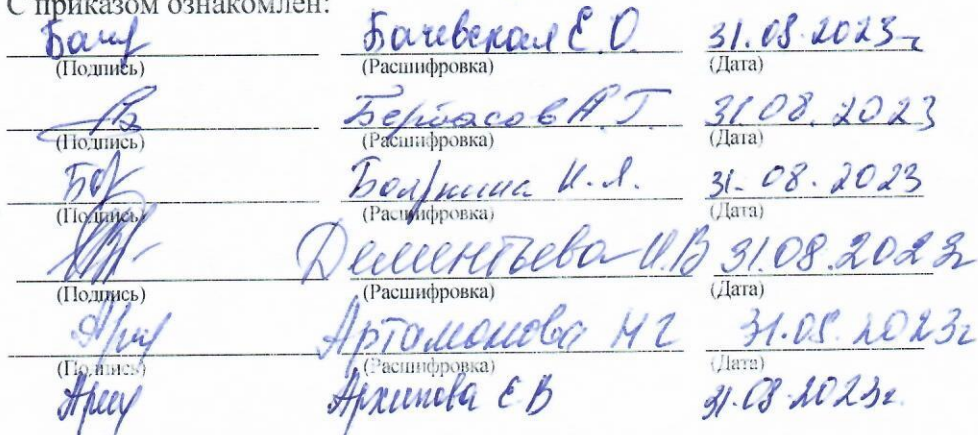 С приказом ознакомлен:
Бачевская Е.О. 31.08.2023г
(Подпись) (Расшифровка) (Дата)
А.Г. 31.08.2023
(Подпись) (Расшифровка) (Дата)
И.Я. 31.08.2023
(Подпись) (Расшифровка) (Дата)
Дементьева И.В 31.08.2023г
(Подпись) (Расшифровка) (Дата)
Артамонова Н Г 31.08.2023г
(Подпись) (Расшифровка) (Дата)
Архипова Е В 31.08.2023г.